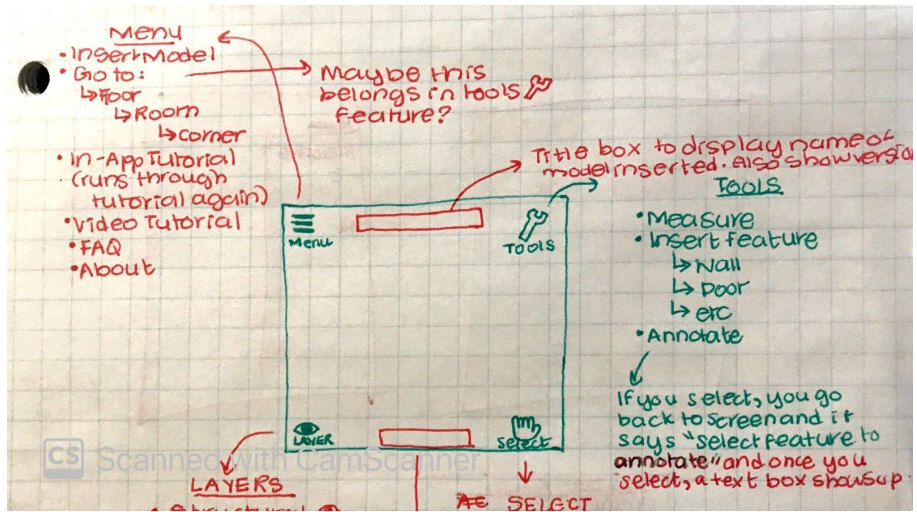 Menu
• Insert Model
• Go to:
↳ Floor
↳ Room
↳ corner
• In-App Tutorial
(runs through
tutorial again)
• Video Tutorial
• FAQ
• About
Maybe this
belongs in tools
feature?
Title box to display name of
model inserted. Also show versio
TOOLS
• Measure
• Insert feature
↳ Wall
↳ Door
↳ etc
• Annotate
If you select, you go
back to screen and it
says "select feature to
annotate" and once you
select, a text box shows up.
Menu
TOOLS
LAYER
Select
CS Scanned with CamScanner
LAYERS
SELECT